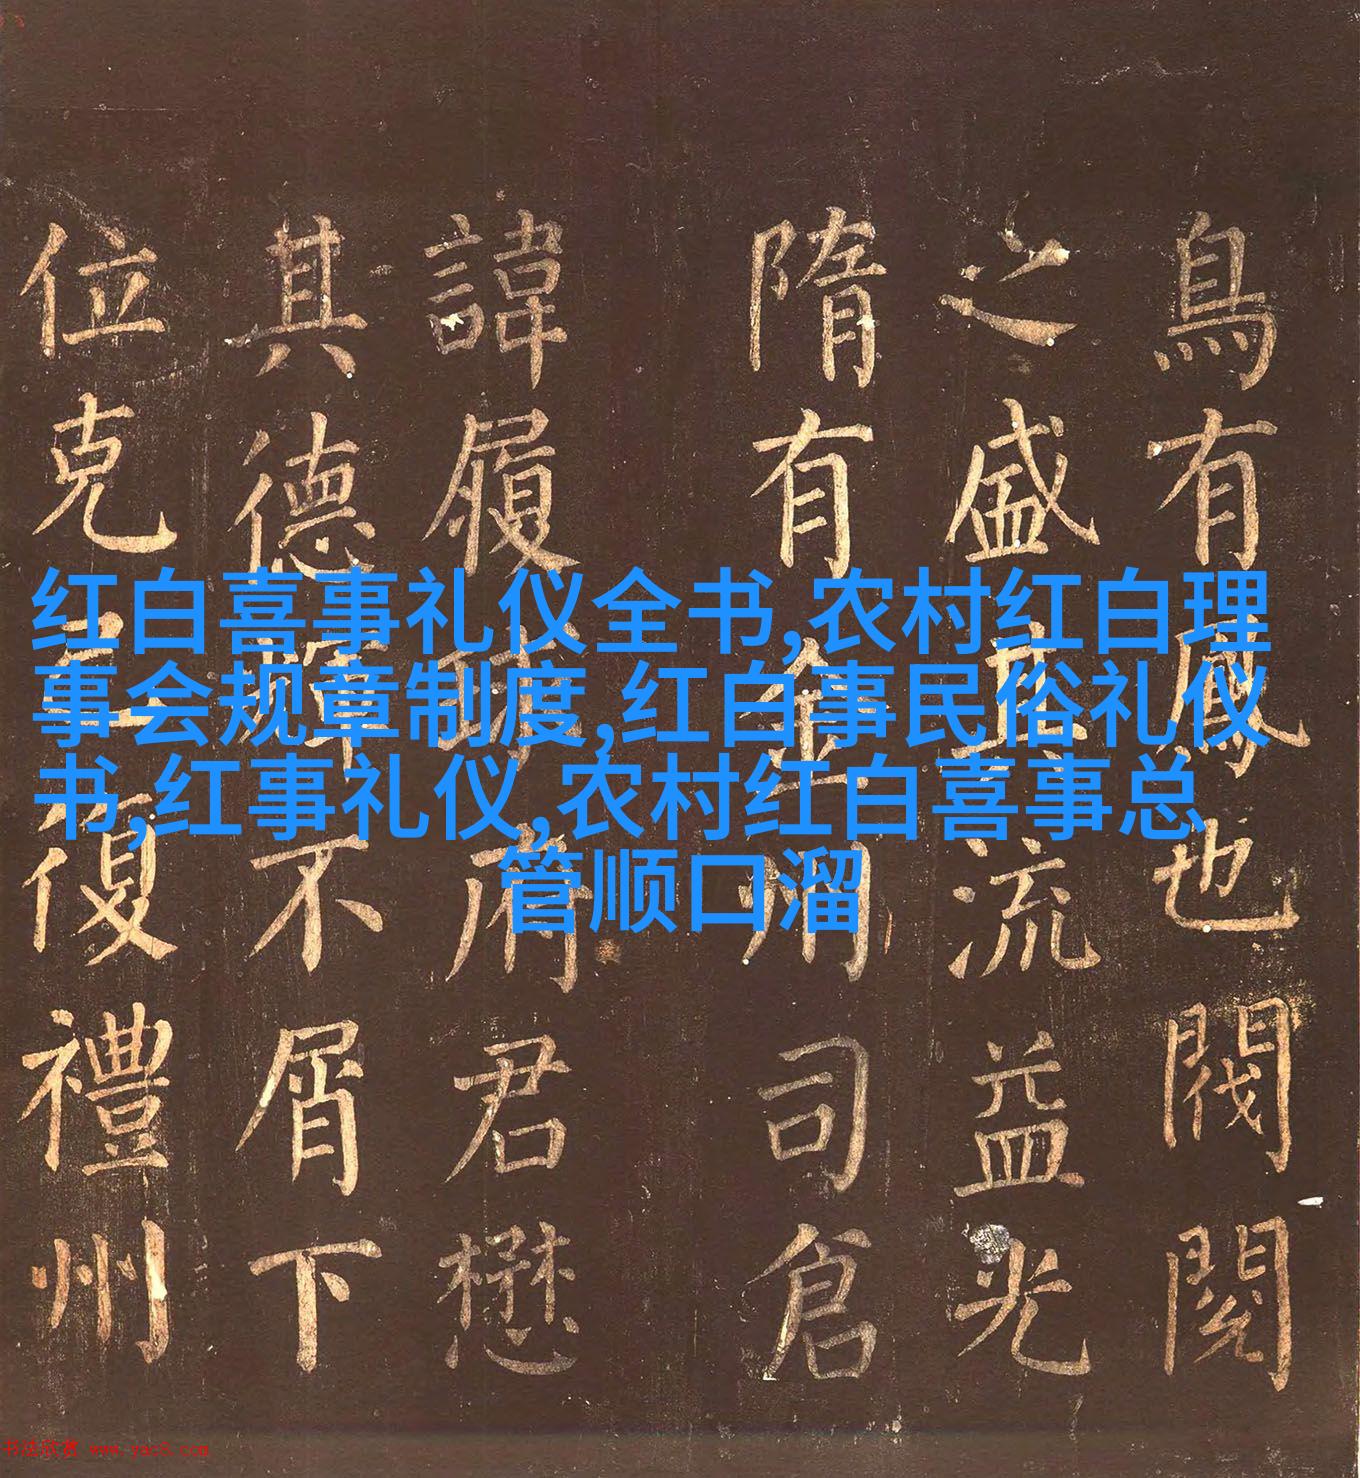 红白喜事礼仪全书,农村红白理
事会规章制度,红白事民俗礼仪
书,红事礼仪,农村红白喜事总
管顺口溜
鳥有鳳也閥閱
之盛流益光
隋有金州司倉
諱履府君懋
其德不屑下
位克復禮州
书法欣赏 www.yac8.com